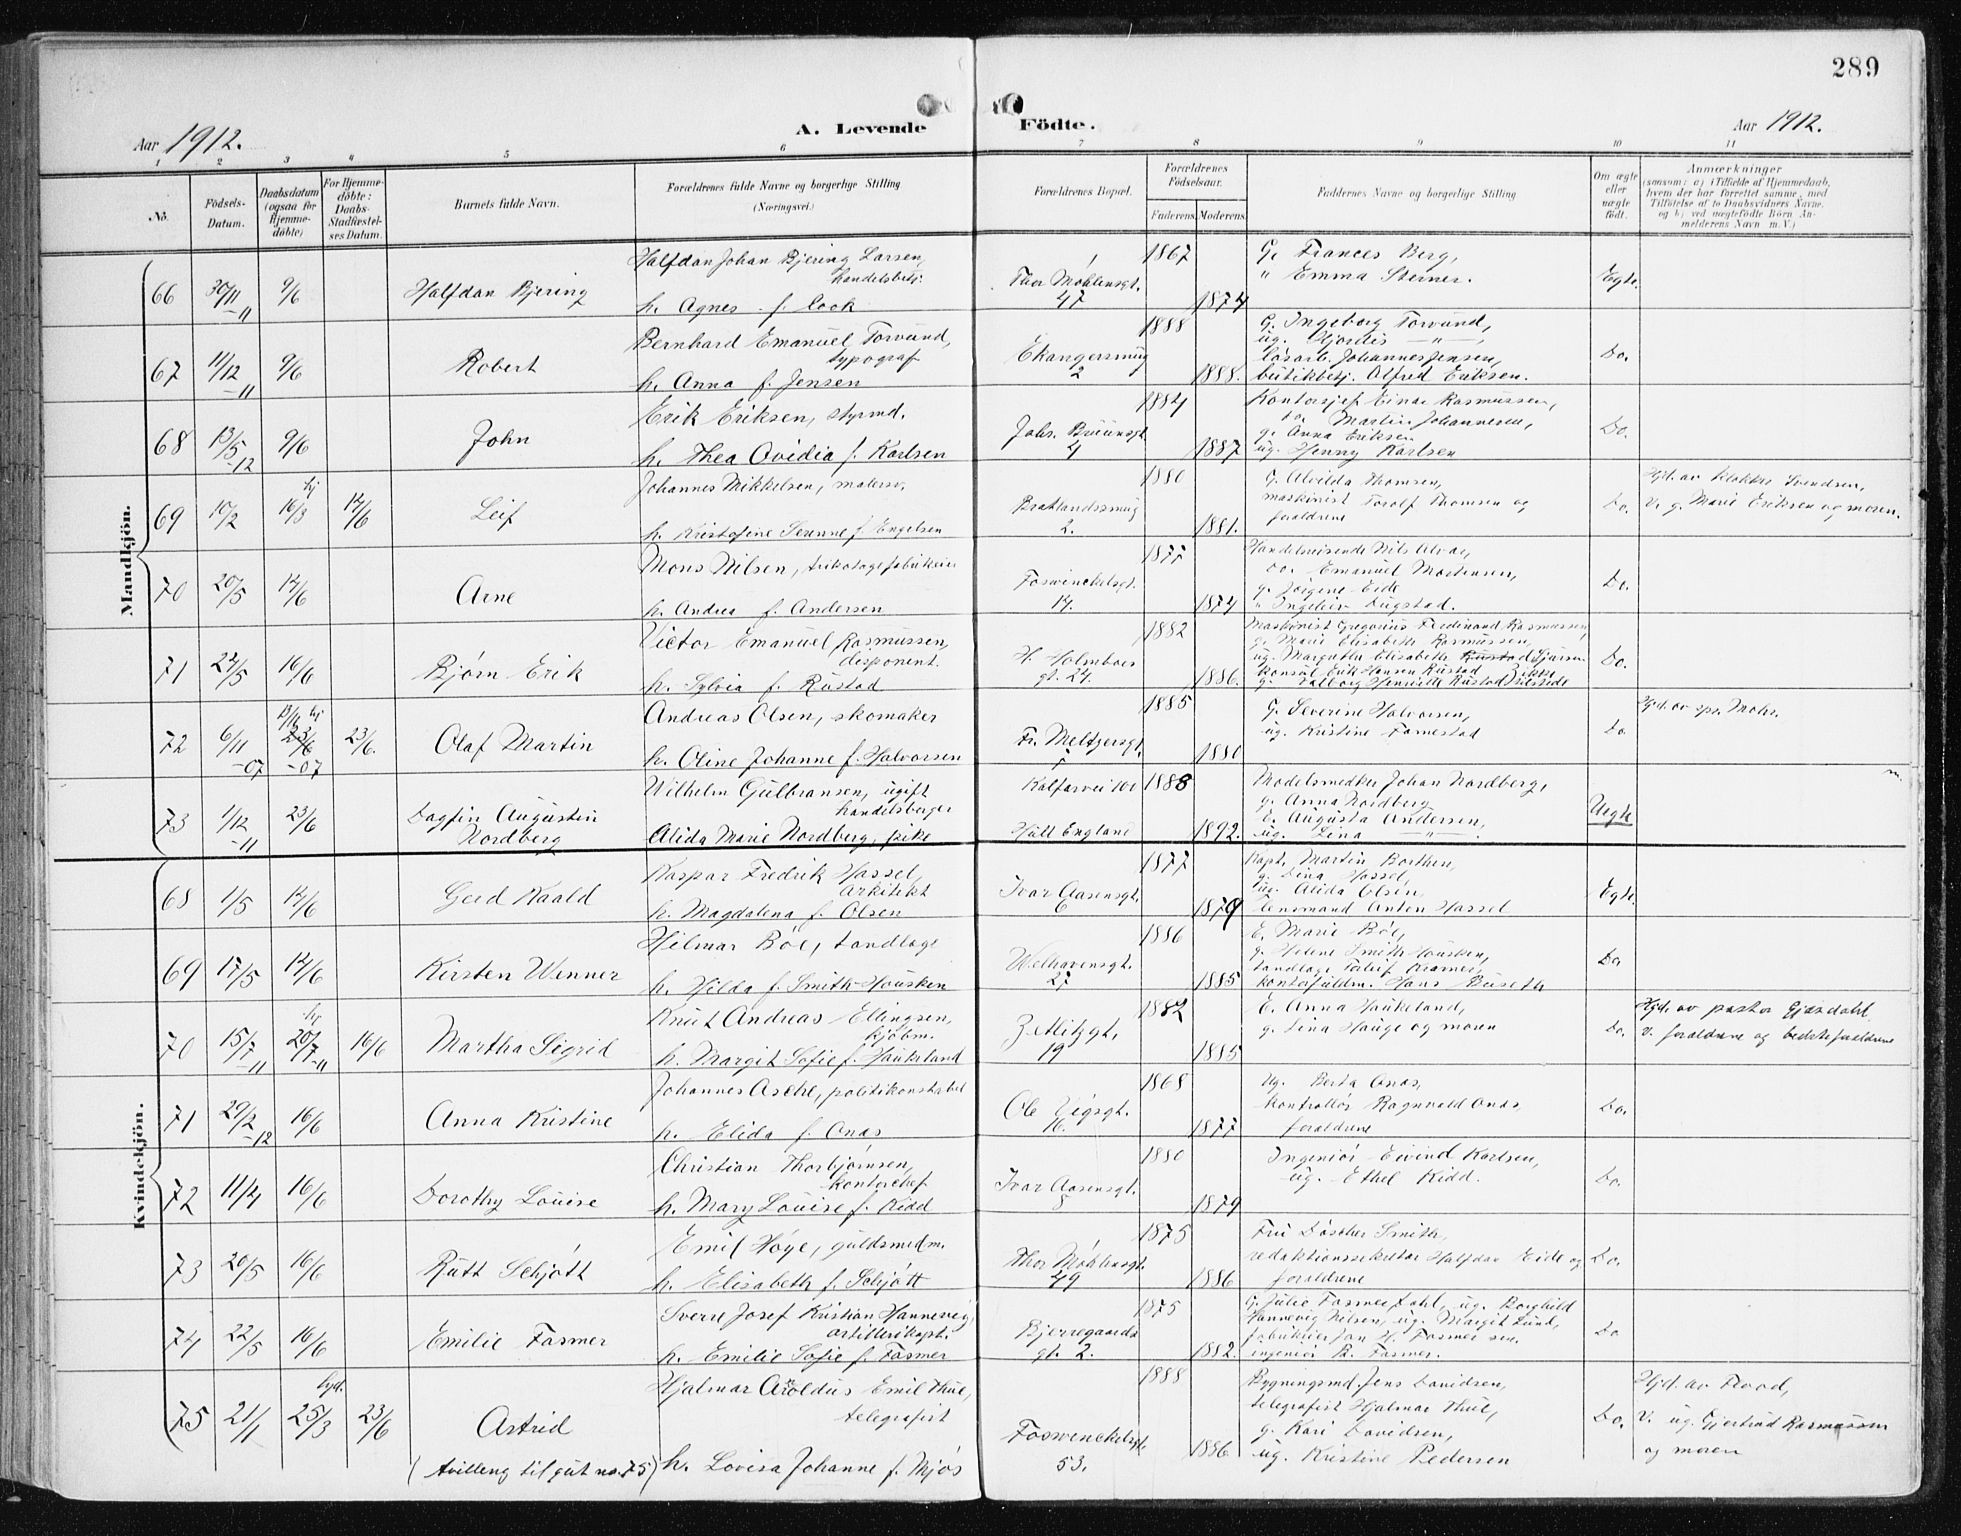 289
Aar 1912.
A. Levende Födte.
Aar 1912.
1 2 3 4 5 6 7 8 9 10 11
No.
Födsels-Datum.
Daabsdatum (ogsaa for Hjemme-döbte)
For Hjemme-döbte: Daabs-Stadfæstel-ses Datum.
Barnets fulde Navn.
Forældrenes fulde Navne og borgerlige Stilling (Næringsvei.)
Forældrenes Bopæl.
Forældrenes Födselsaar.
Faderens Moderens
Faddernes Navne og borgerlige Stilling
Om ægte eller uægte födt.
Anmærkninger
(saasom: a) i Tilfælde af Hjemmedaab, hvem der har forrettet samme, med Tilföielse af to Daabsvidners Navne, og b) ved uægtefödte Börn An-melderens Navn m. V.)
Mandkjön.
66 30/11 -11 9/6 Halfdan Bjering
Halfdan Johan Bjering Larsen, handelsbetj.
h. Agnes f. Cook
Thor Møhlensgt. 47
1867 1874
G. Frances Berg,
" Emma Steiner.
Egte.
67 11/12 -11 9/6 Robert
Bernhard Emanuel Torvund, typograf
h. Anna f. Jensen
Ekangersmug 2
1888 1888.
G. Ingeborg Torvund,
ug. Hjørdis — " —,
løsarb. Johannes Jensen,
butikbetj. Alfred Eriksen.
Do.
68 13/5 -12 9/6 John
Erik Eriksen, styrmd.
h. Thea Ovidia f. Karlsen
Johs. Bruunsgt. 4
1884 1887
Kontorsjef Einar Rasmussen,
do. Martin Johannesen,
g. Anna Eriksen
ug. Henny Karlsen
Do.
69 10/2 hj 16/3 14/6 Leif
Johannes Mikkelsen, malersv.
h. Kristofine Serenne f. Engelsen
Bratlandssmug 2.
1880 1881.
G. Alvilda Thomsen,
maskinist Torolf Thomsen og
forældrene
Do.
Hjd. av klokker Svendsen,
v. g. Marie Eriksen og moren.
70 20/5 14/6 Arne
Mons Nilsen, trikotagefabrikeier
h. Andrea f. Andersen
Foswinckelsgt. 14.
1877 1874
Handelsreisende Nils Alvær,
do. Emanuel Mortensen,
g. Jörgine Eide
" Ingeleiv Dugstad.
Do.
71 24/5 16/6 Bjørn Erik
Victor Emanuel Rasmussen, disponent.
h. Sylvia f. Rustad
H. Holmboes gt. 24.
1882 1886.
Maskinist Gregorius Ferdinand Rasmussen,
g. Marie Elisabeth Rasmussen,
ug. Margrethe Elisabeth
konsul Erik Hansen Rustad
g. Valborg Henriette Rustad
Do.
72 6/11 -07 hj 23/6 -07 23/6. Olaf Martin
Andreas Olsen, skomaker
h. Oline Johanne f. Halvorsen
Fr. Meltzersgt.
1885 1880
G. Severine Halvorsen,
ug. Kristine Fornestad
Do.
Hjd. av spr. Mohr.
73 1/12 -11 23/6 Dagfin Augustin Nordberg
Wilhelm Gulbransen, ugift handelsborger
Alida Marie Nordberg, pike
Kalfarvei 101
Hull England
1888 1892.
Modelsnedker Johan Nordberg,
g. Anna Nordberg
E. Augusta Andersen,
ug. Lina — " —.
Uegte
Kvindekjön.
68 1/5 14/6 Gerd Kaald
Kaspar Fredrik Hassel, arkitekt
h. Magdalena f. Olsen
Ivar Aasensgt. 6
1877 1879
Kapt. Martin Borthen,
g. Lina Hassel,
ug. Alida Olsen,
Lensmand Anton Hassel
Egte.
69 17/5 14/6 Kirsten Wenner
Hilmar Bøe, tandlæge
h. Hilda f. Smith-Housken
Welhavensgt. 27
1886 1885
E. Marie Bøe,
g. Helene Smith Housken,
tandlæge Torleif Kramer,
kontorfuldm. Hans Buseth
Do.
70 15/7 -11 hj 20/7 -11 16/6 Martha Sigrid
Knut Andreas Ellingsen, kjøbm.
h. Margit Sofie f. Haukeland
Z. Mitzgt. 19
1882 1885
E. Anna Haukeland,
g. Lina Hauge og moren
Do.
Hjd. av pastor Gjesdahl
v. forældrene og bedsteforældrene
71 29/2 -12 16/6 Anna Kristine
Johannes Asche, politikonstabel
h. Elida f. Onas
Ole Vigsgt. 16.
1868 1877
Ug. Berta Onas,
kontrollør Ragnvald Onas,
forældrene
Do.
72 11/4 16/6 Dorothy Louise
Christian Thorbjørnsen, kontorchef
h. Mary Louise f. Kidd
Ivar Aasensgt. 8
1880 1879
Ingeniør Eivind Karlsen,
ug. Ethel Kidd.
Do.
73 20/5 16/6 Rutt Schjøtt
Emil Høye, guldsmedm.
h. Elisabeth f. Schjøtt
Thor Møhlensgt. 49
1875 1886
Fru Dösther Smith,
redaktionssekretær Halfdan Eide og
forældrene
Do.
74 22/5 16/6 Emilie Fasmer
Sverre Josef Kristian Hannevig, artillerikapt.
h. Emilie Sofie f. Fasmer
Bjerregaards gt. 2.
1875 1882.
G. Julie Fasmer Dahl, ug. Borghild
Hannevig Nilsen, ug. Margit Lund,
fabrikeier Jan H. Fasmer sen.
ingeniør B. Fasmer.
Do
75 21/1 hjd. 25/3 23/6 Astrid
(tvilling til gut no. 75)
Hjalmar Aroldus Emil Thue, telegrafist
h. Lovisa Johanne f. Mjøs
Foswinckelsgt. 53.
1888 1886
Bygningsmd. Jens Davidsen,
telegrafist Hjalmar Thue,
g. Kari Davidsen,
ug. Kristine Pedersen
Do.
Hjd. av Flood,
v. ug. Gjertrud Rasmussen
og moren